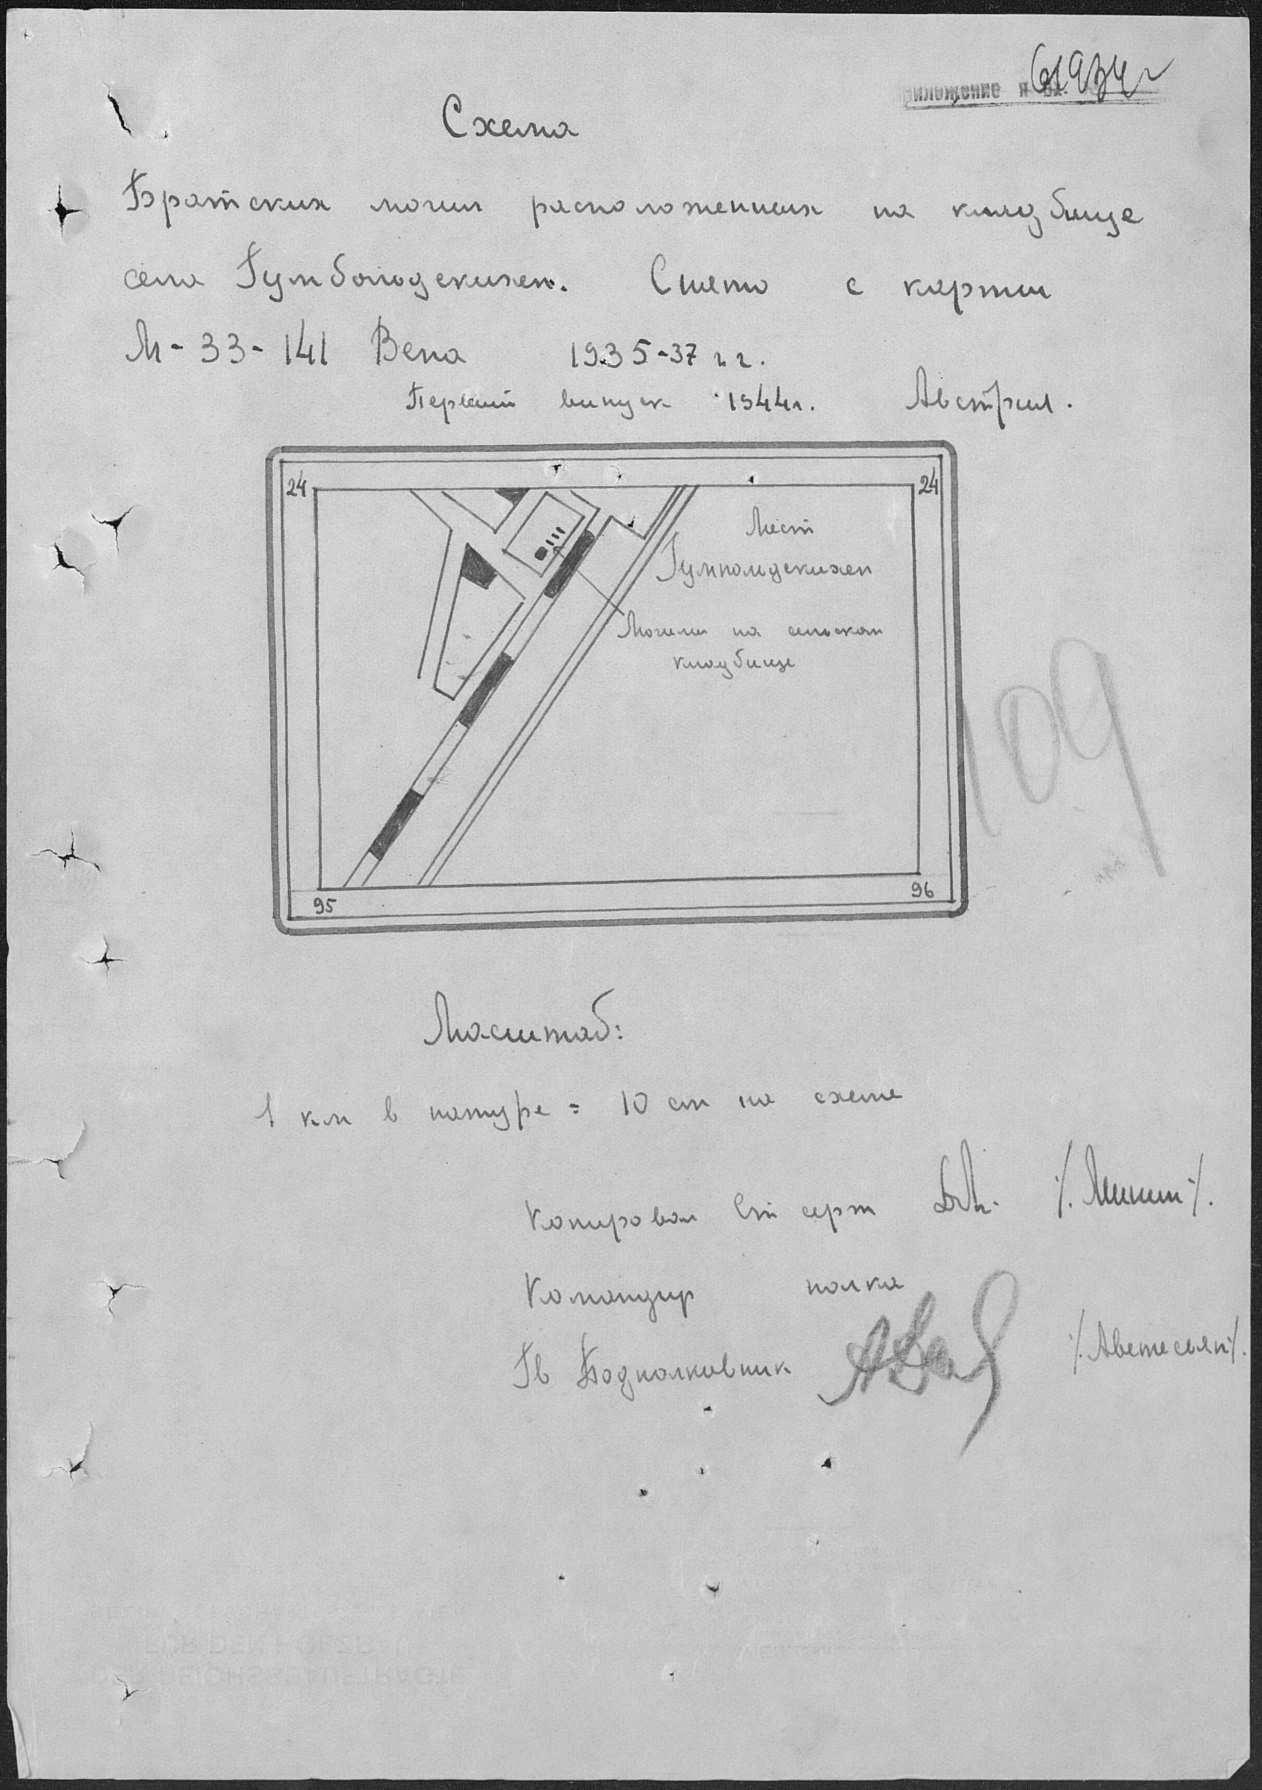 61934г
риложение к вх.
Схема
Братских могил расположенных на кладбище
села Гумбольдскихен. Снято с карты
М-33-141 Вена 1935-37 г.г.
Первый выпуск 1944г. Австрия.
24
24
Мест
Гумпольдскихен
Могилы на сельском
кладбище
95
96
109
Масштаб:
1 км в натуре = 10 см на схеме
Копировал Ст серж /. Микит /.
Командир полка
Гв Подполковник /. Аветесьян /.
FÜR DEN HOLZBAU
DER REICHSBEAUFTRAGTE